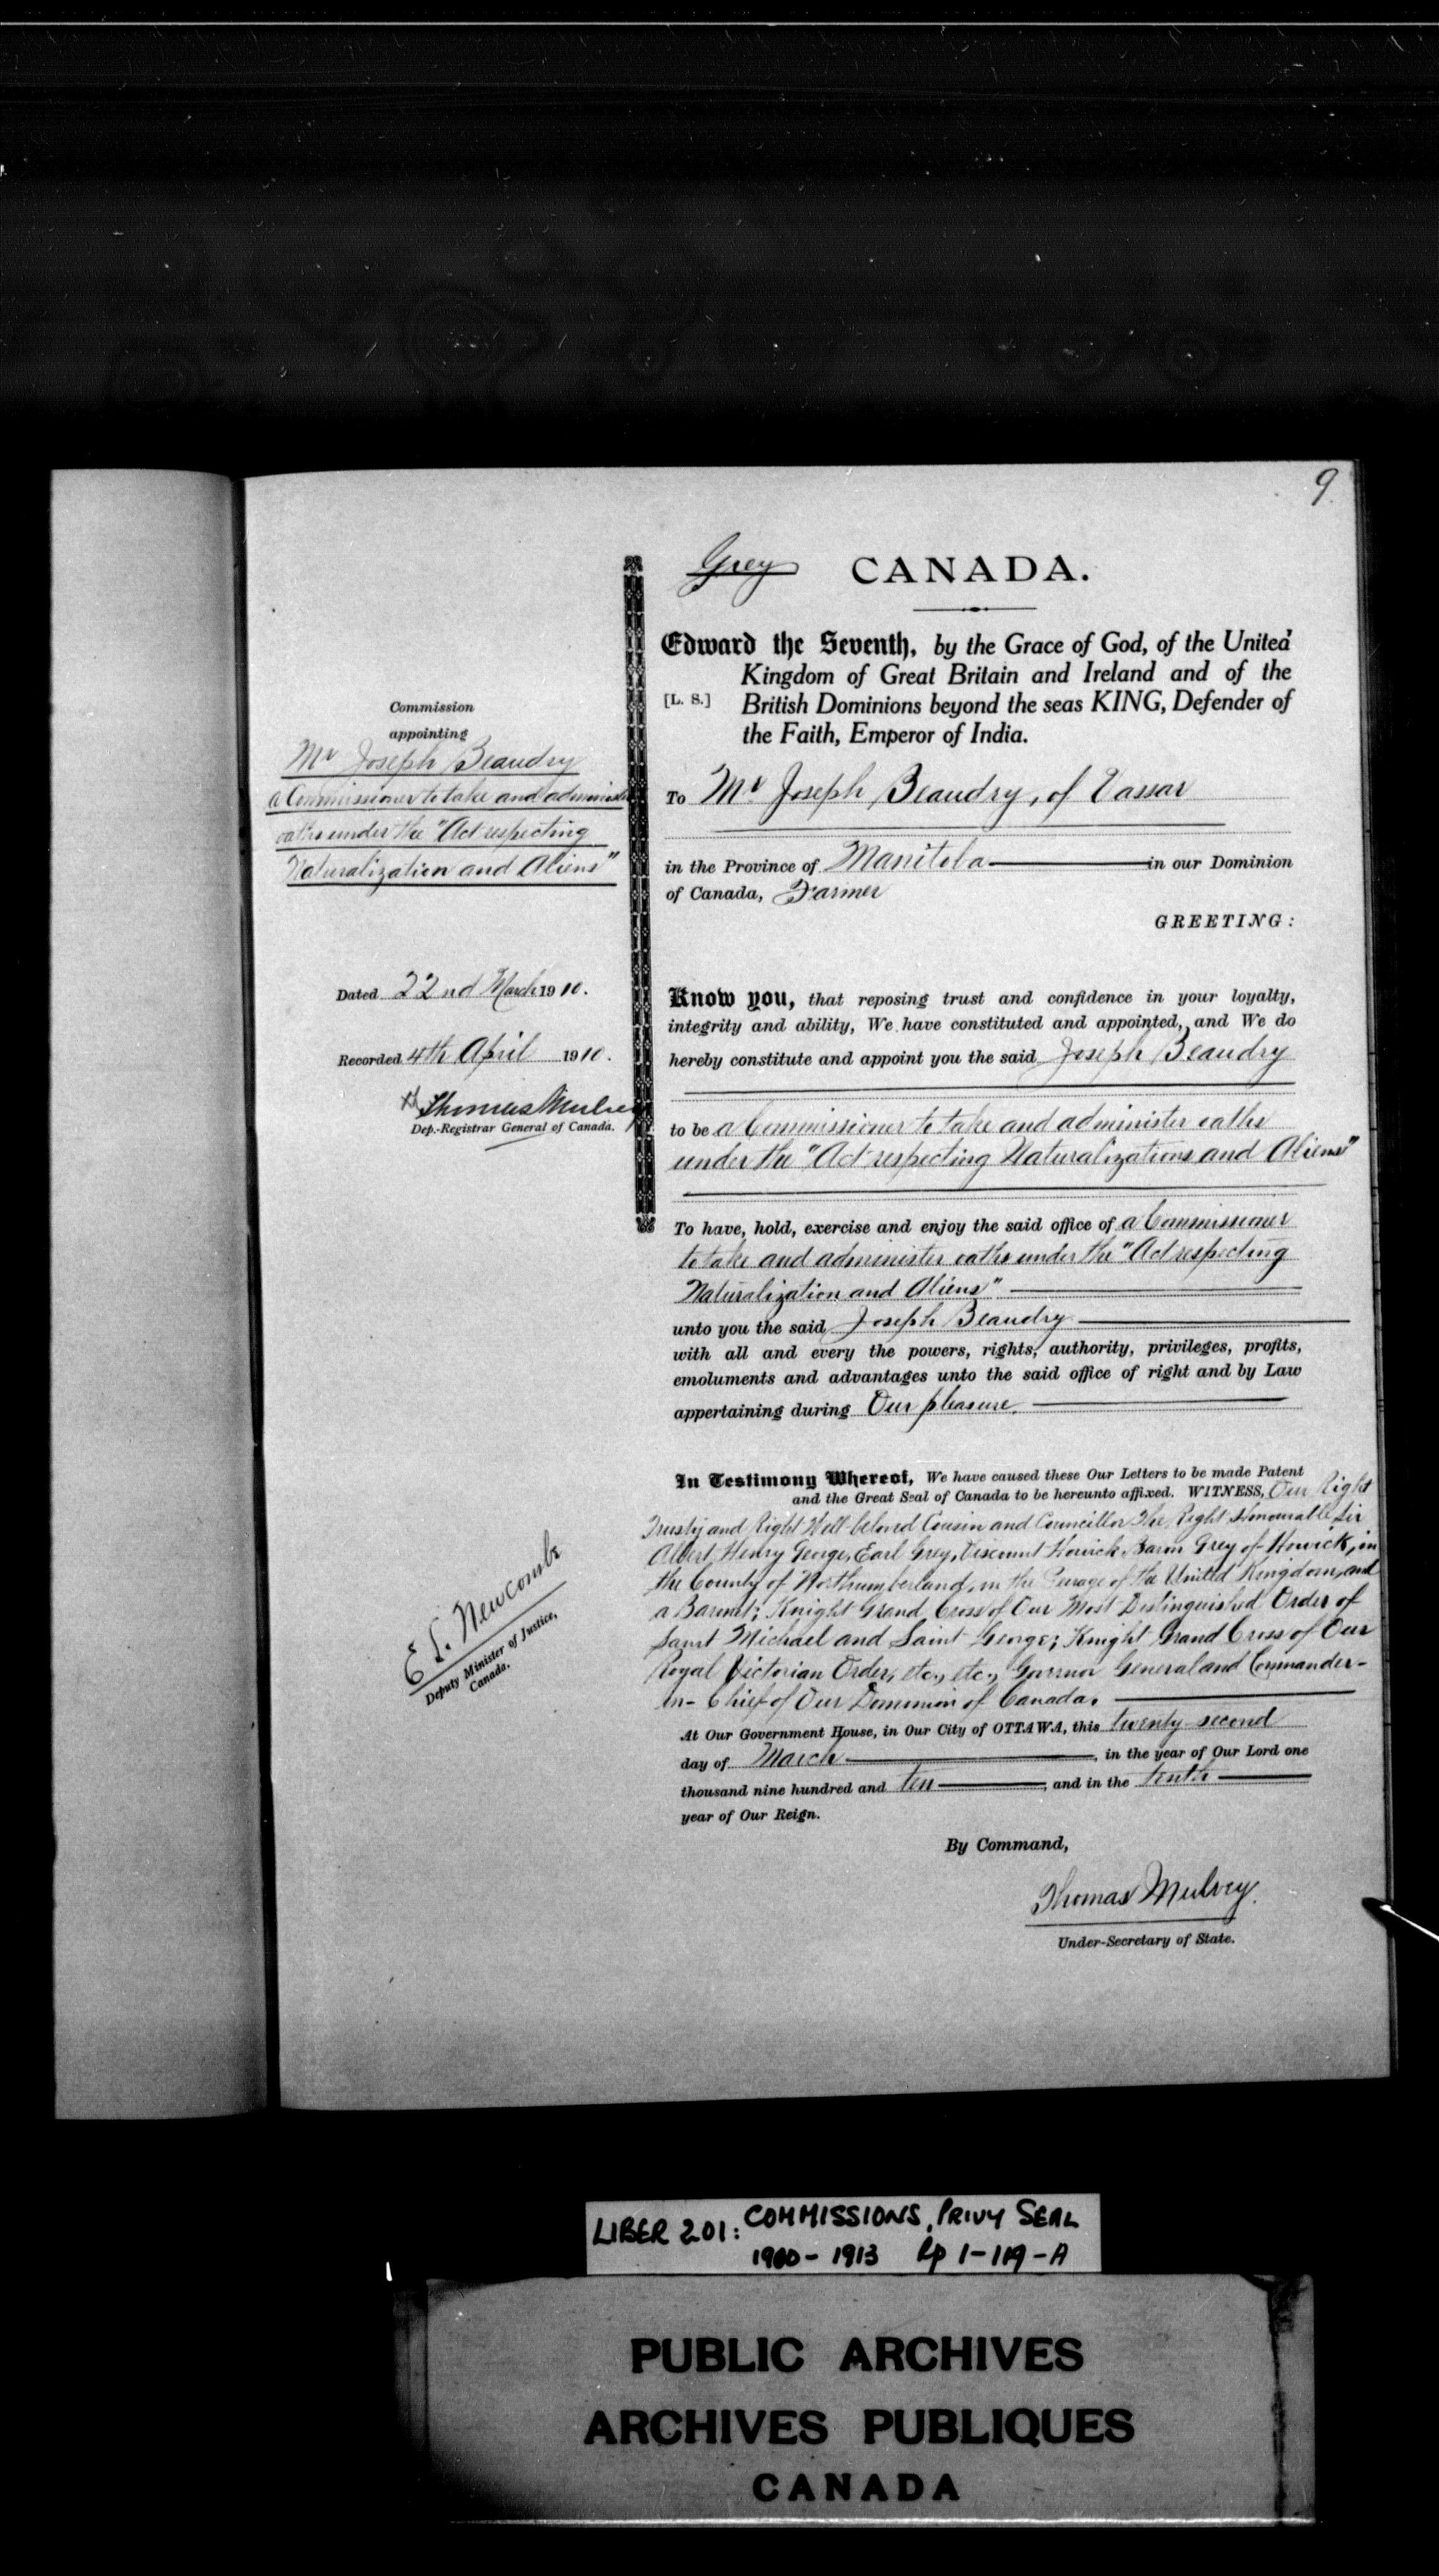 9
Grey CANADA.
Edward the Seventh, by the Grace of God, of the United
Kingdom of Great Britain and Ireland and of the
[L. S.] British Dominions beyond the seas KING, Defender of
the Faith, Emperor of India.
Commission
appointing
Mr Joseph Beaudry
a Commissioner to take and administer
oaths under the "Act respecting
Naturalization and Aliens"
Dated 22nd March 1910.
Recorded 4th April 1910.
Thomas Mulvey
Dep.-Registrar General of Canada.
To Mr Joseph Beaudry, of Vassar
in the Province of Manitoba in our Dominion
of Canada, Farmer
GREETING:
Know you, that reposing trust and confidence in your loyalty,
integrity and ability, We have constituted and appointed, and We do
hereby constitute and appoint you the said Joseph Beaudry
to be a Commissioner to take and administer oaths
under the "Act respecting Naturalizations and Aliens"
To have, hold, exercise and enjoy the said office of a Commissioner
to take and administer oaths under the "Act respecting
Naturalization and Aliens"
unto you the said Joseph Beaudry
with all and every the powers, rights, authority, privileges, profits,
emoluments and advantages unto the said office of right and by Law
appertaining during Our pleasure.
In Testimony Whereof, We have caused these Our Letters to be made Patent
and the Great Seal of Canada to be hereunto affixed. WITNESS, Our Right
Trusty and Right Well-beloved Cousin and Councillor The Right Honourable Sir
Albert Henry George, Earl Grey, Viscount Howick, Baron Grey of Howick, in
the County of Northumberland, in the Peerage of the United Kingdom, and
a Baronet; Knight Grand Cross of Our Most Distinguished Order of
Saint Michael and Saint George; Knight Grand Cross of Our
Royal Victorian Order, etc., etc., Governor General and Commander-
in-Chief of Our Dominion of Canada.
At Our Government House, in Our City of OTTAWA, this twenty-second
day of March, in the year of Our Lord one
thousand nine hundred and ten; and in the tenth
year of Our Reign.
By Command,
Thomas Mulvey.
Under-Secretary of State.
E L. Newcombe
Deputy Minister of Justice,
Canada.
LIBER 201: COMMISSIONS, PRIVY SEAL
1910 - 1913 pp 1-119-A
PUBLIC ARCHIVES
ARCHIVES PUBLIQUES
CANADA